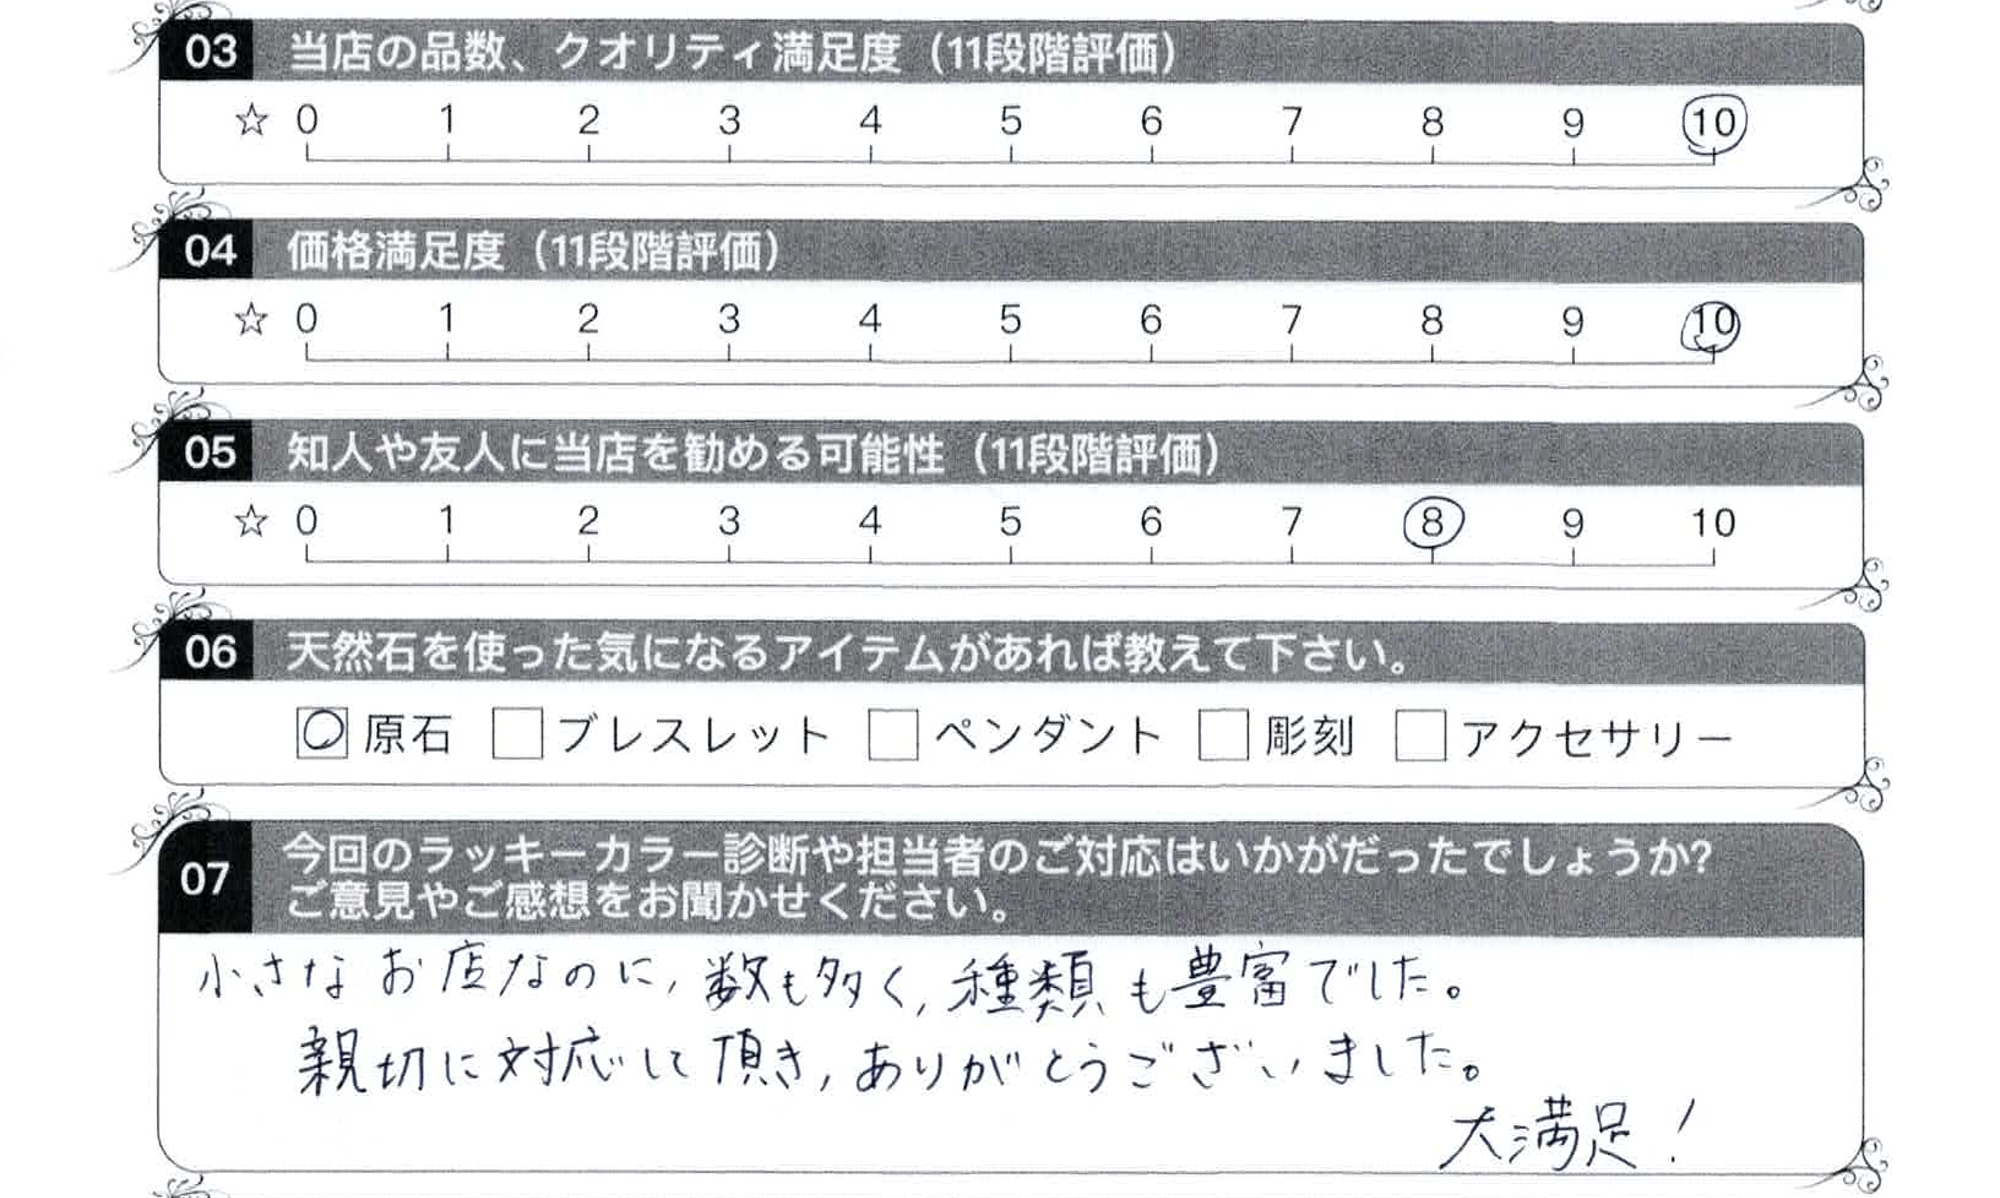 03 当店の品数、クオリティ満足度（11段階評価）
☆ 0 1 2 3 4 5 6 7 8 9 10
04 価格満足度（11段階評価）
☆ 0 1 2 3 4 5 6 7 8 9 10
05 知人や友人に当店を勧める可能性（11段階評価）
☆ 0 1 2 3 4 5 6 7 8 9 10
06 天然石を使った気になるアイテムがあれば教えて下さい。
原石 ブレスレット ペンダント 彫刻 アクセサリー
07 今回のラッキーカラー診断や担当者のご対応はいかがだったでしょうか?
ご意見やご感想をお聞かせください。
小さなお店なのに,数も多く,種類も豊富でした。
親切に対応して頂き,ありがとうございました。
大満足!